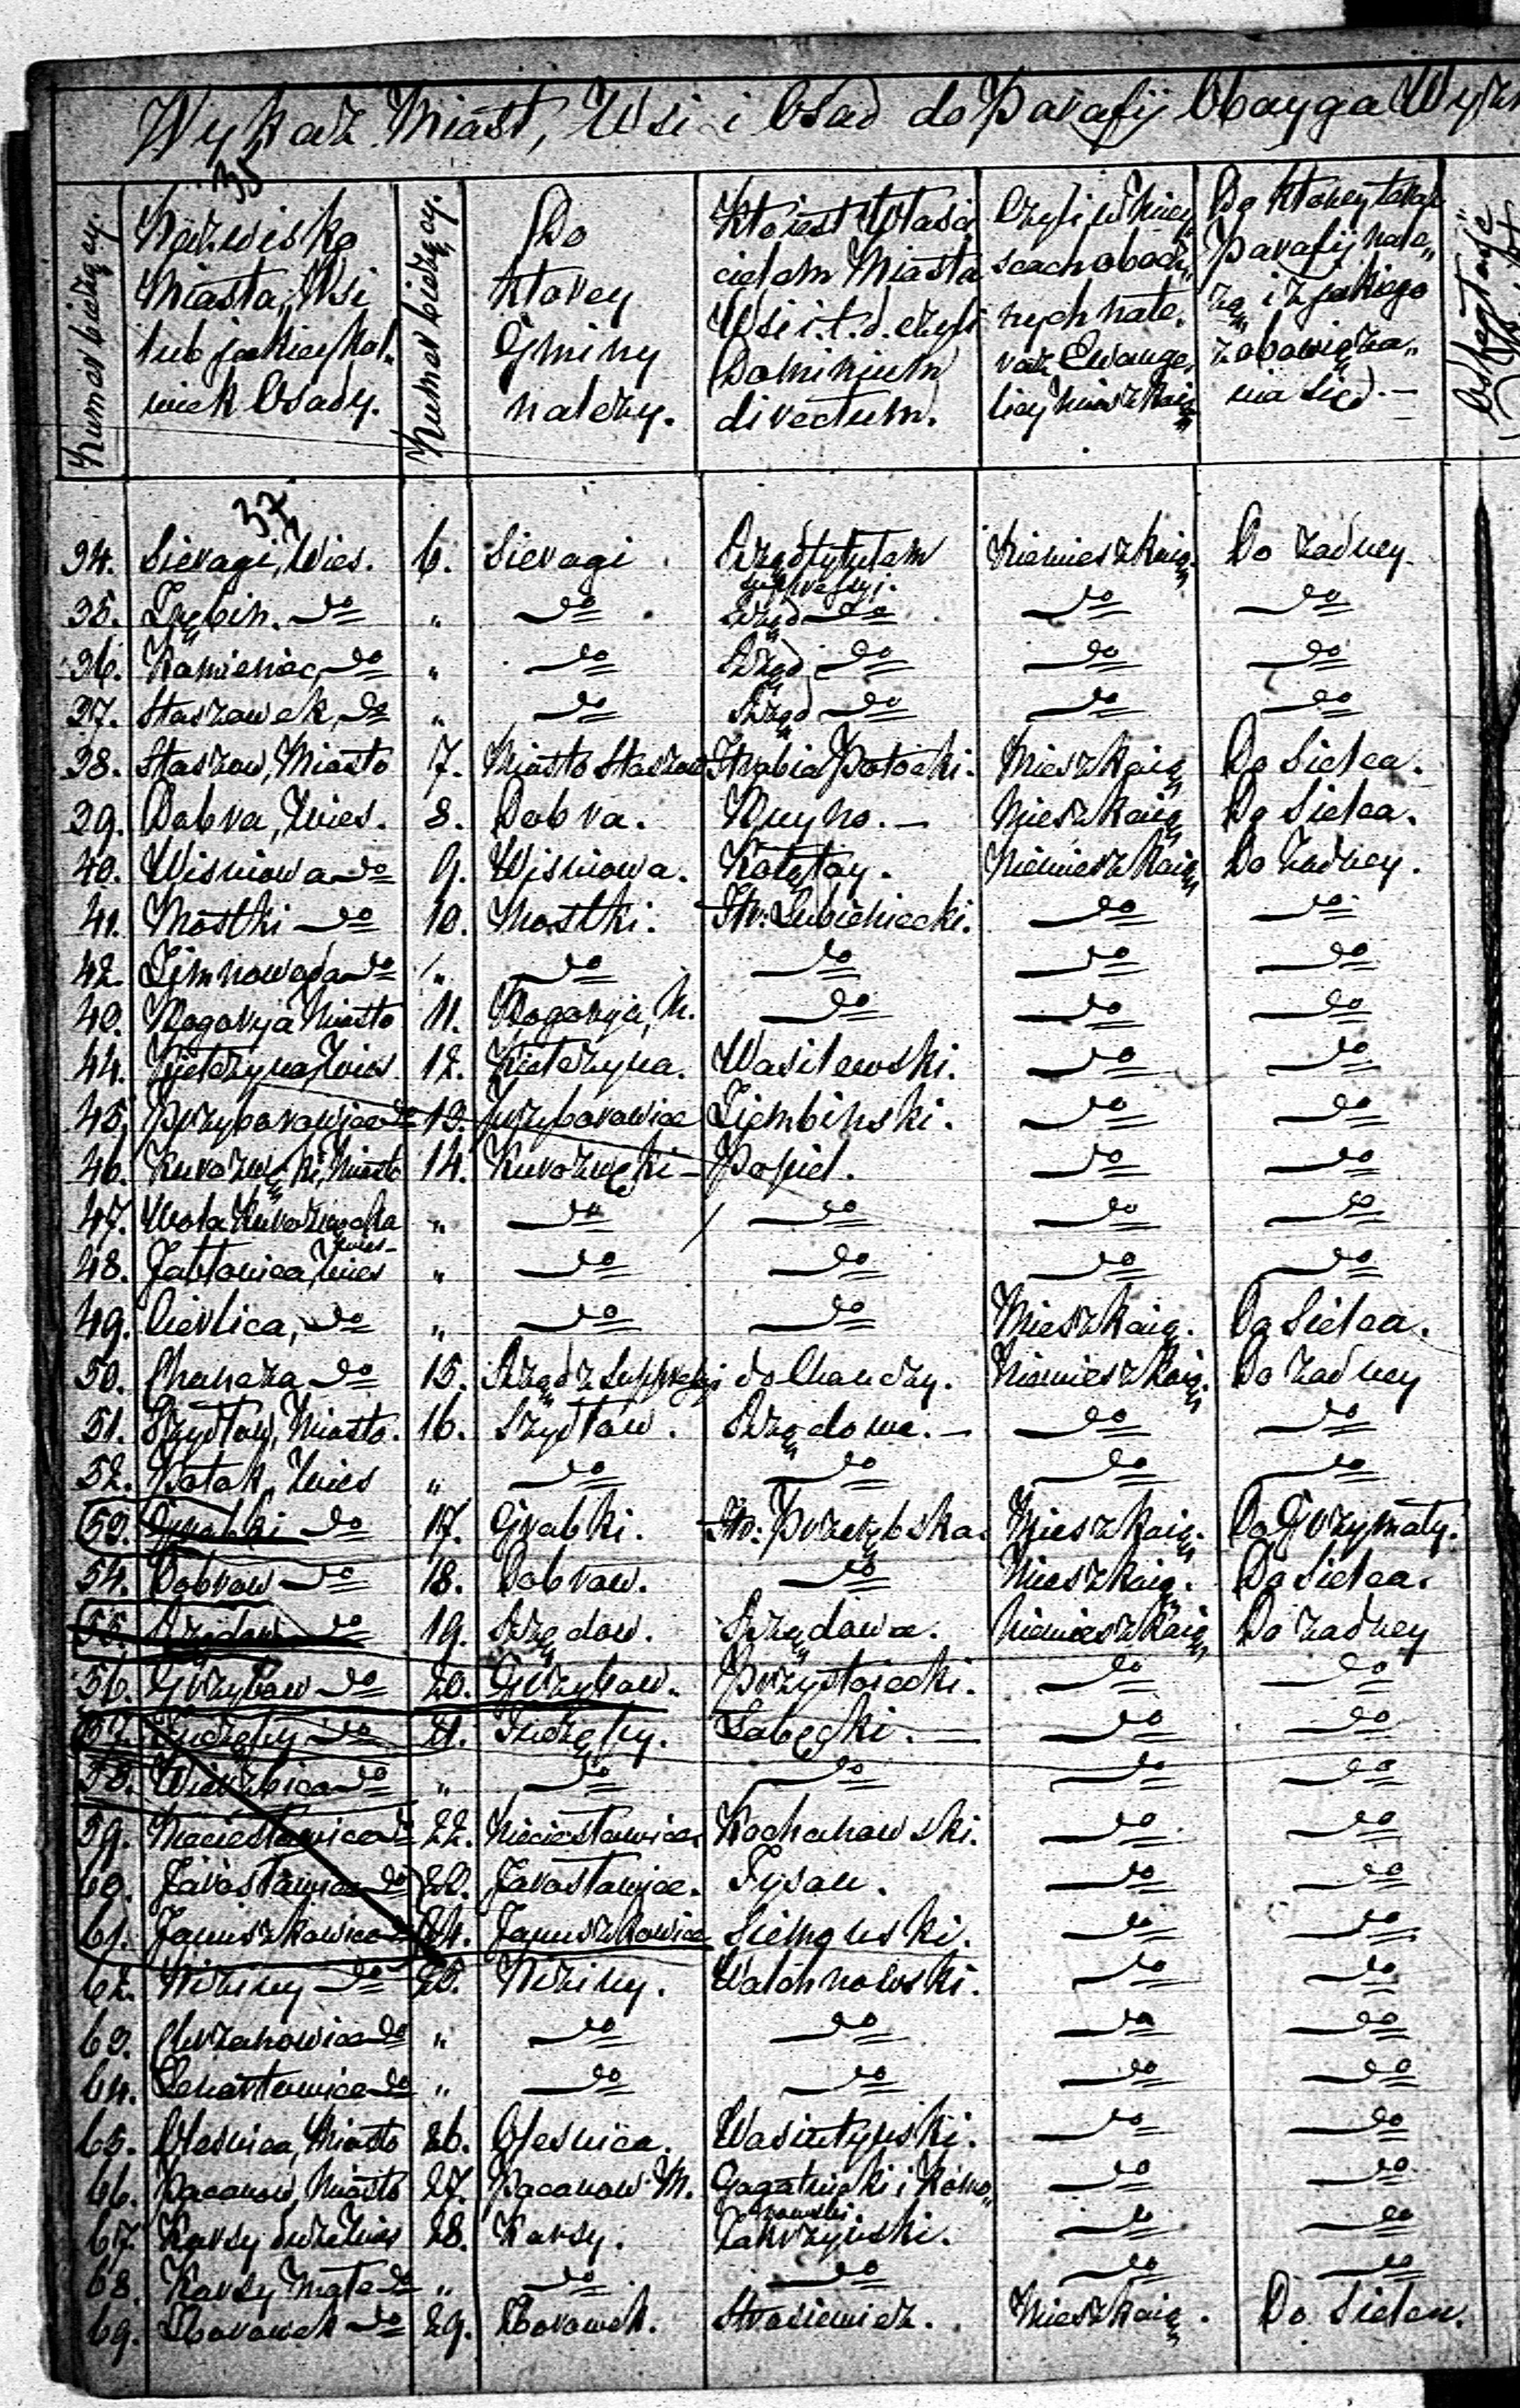 Wykaz Miast, Wsi i Osad do Parafij Obayga Wyzn
35
Numer bieżący. Nazwisko Miasta, Wsi lub jakieykolwiek Osady. Numer bieżący. Do ktorey Gminy należy. Kto iest właścicielem Miasta Wsi i.t.d. czyli Dominium directum. Czyli w mieyscach obocznych nale. Ewange. mieszkaią Do ktorey teraz Parafij nale„ żą i z jakiego zobowiąza„ nia się. —
37
34. Sieragi, Wies. 6. Sieragi. Rząd tytułem supresyj. Niemieszkaią. Do żadney.
35. Trębin. do „ do Rząd do do do
36. Kamieniec, do „ do Rząd do do do
37. Staszowek, do „ do Rząd do do do
38. Staszow, Miasto 7. Miasto Staszow Hrabia Potocki. Mieszkaią Do Sielca.
39. Dobra, Wies. 8. Dobra. — Mieszkaią Do Sielca.
40. Wisniowa do 9. Wisniowa. Kołątay. Niemieszkaią Do żadney.
41. Mostki do 10. Mostki. Hr. Lubieniecki. do do
42. Zimnowoda do „ do do do do
43. Bogorya Miasto 11. Bogoryja, M. do do do
44. Kiełczyna, Wies 12. Kiełczyna. Wasilewski. do do
45. Przyborowice do 13. Przyborowice Ziembinski. do do
46. Kurozwęki, Miasto 14. Kurozwęki — Popiel. do do
47. Wola Kurozwęcka Wies „ do do do do
48. Jabłonica, Wies „ do do do do
49. Cierlica, do „ do do Mieszkaią. Do Sielca.
50. Chancza do 15. Rząd z Suppresyi do Chanczy. Niemieszkaią. Do żadney
51. Szydłow, Miasto. 16. Szydłow. Rządowe. — do do
52. Potok, Wies „ do do do do
53. Grabki do 17. Grabki. Hr. Przerębska. Mieszkaią. Do Grzymały.
54. Dobrow do 18. Dobrow. do Mieszkaią. Do Sielca.
55. Rządow do 19. Rządow. Rządowa. Niemieszkaią Do żadney
56. Grzybow do 20. Grzybow. Przystoiecki. do do
57. do 21. Łabęcki. — do do
58. Wierzbica do „ do do do do
59. Niecieslawice do 22. Niecieslawice. Kochanowski. do do
60. Jarosławice do 23. Jarosławice. Tysan. do do
61. Januszkowice do 24. Januszkowice Siemonski. do do
62. Niziny do 25. Niziny. Walchnowski. do do
63. Chrzanowice do „ do do do do
64. Lenartowice do „ do do do do
65. Olesnica, Miasto 26. Olesnica. Wasiutynski. do do
66. Pacanow, Miasto 27. Pacanow M. Gagatnicki i do do
67. Karsy duże Wies 28. Karsy. Zakrzynski. do do
68. Karsy Małe do „ do do do do
69. Zborowek do 29. Zborowek. Strasiewicz. Mieszkaią. Do Sielca.